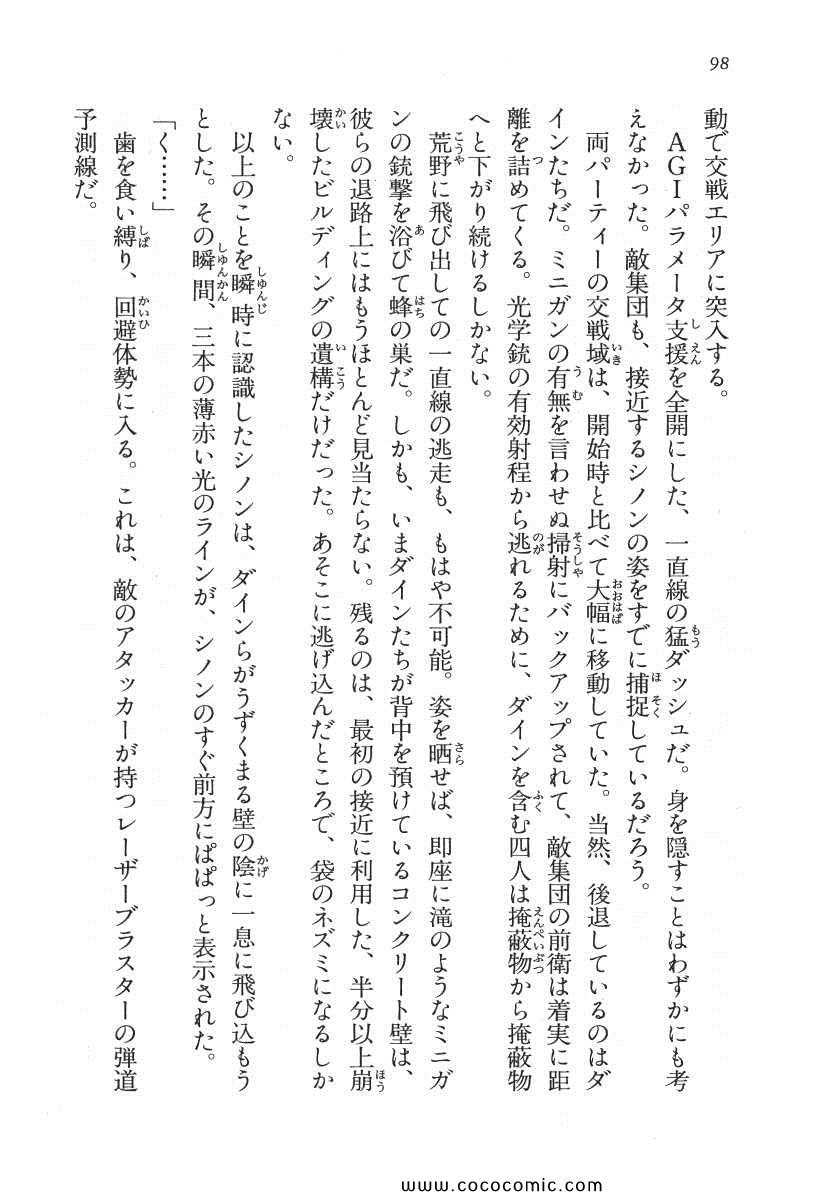 98
動で交戦エリアに突入する。
　ＡＧＩパラメータ支援を全開にした、一直線の猛ダッシュだ。身を隠すことはわずかにも考
えなかった。敵集団も、接近するシノンの姿をすでに捕捉しているだろう。
　両パーティーの交戦域は、開始時と比べて大幅に移動していた。当然、後退しているのはダ
インたちだ。ミニガンの有無を言わせぬ掃射にバックアップされて、敵集団の前衛は着実に距
離を詰めてくる。光学銃の有効射程から逃れるために、ダインを含む四人は掩蔽物から掩蔽物
へと下がり続けるしかない。
　荒野に飛び出しての一直線の逃走も、もはや不可能。姿を晒せば、即座に滝のようなミニガ
ンの銃撃を浴びて蜂の巣だ。しかも、いまダインたちが背中を預けているコンクリート壁は、
彼らの退路上にはもうほとんど見当たらない。残るのは、最初の接近に利用した、半分以上崩
壊したビルディングの遺構だけだった。あそこに逃げ込んだところで、袋のネズミになるしか
ない。
　以上のことを瞬時に認識したシノンは、ダインらがうずくまる壁の陰に一息に飛び込もう
とした。その瞬間、三本の薄赤い光のラインが、シノンのすぐ前方にぱぱっと表示された。
「く……」
　歯を食い縛り、回避体勢に入る。これは、敵のアタッカーが持つレーザーブラスターの弾道
予測線だ。
www.cococomic.com